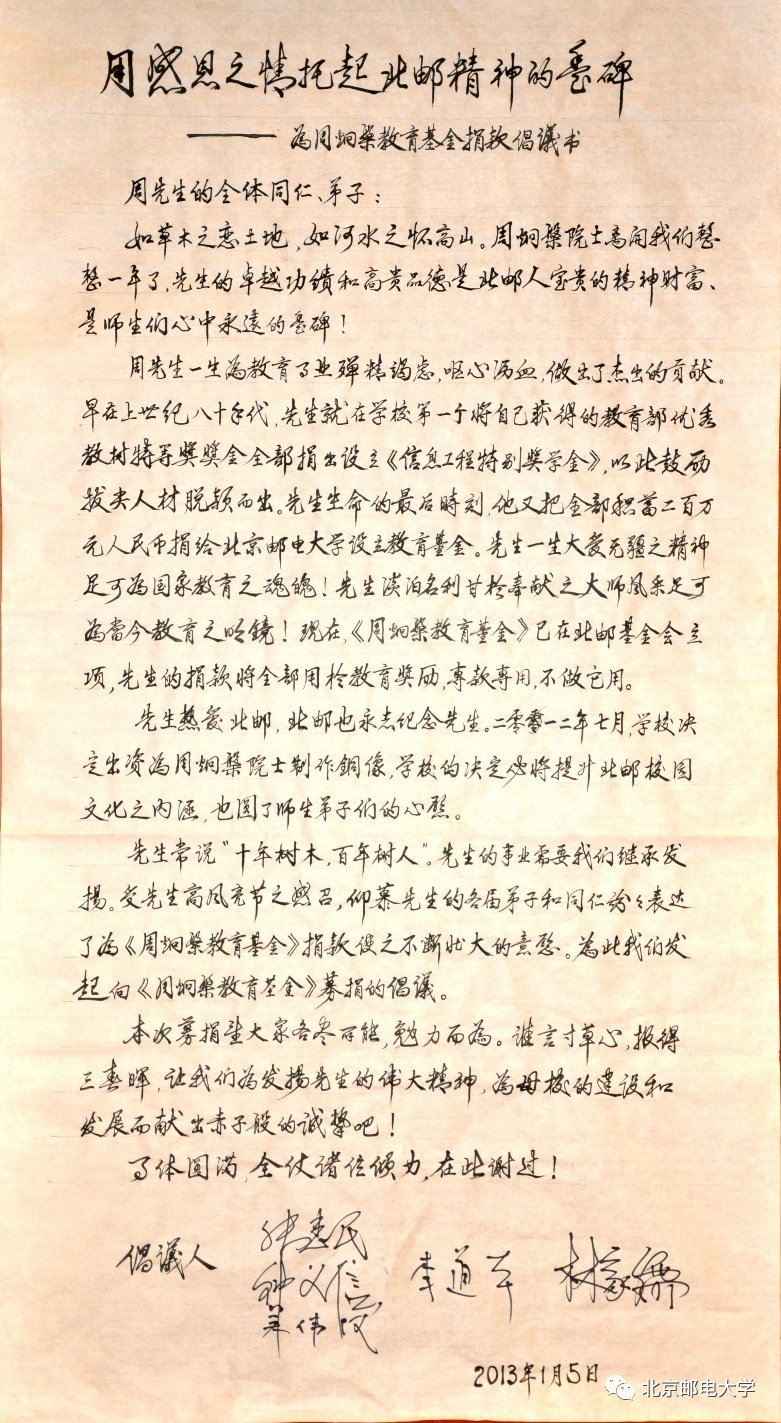 用感恩之情托起北邮精神的丰碑
——为周炯槃教育基金捐款倡议书
周先生的全体同仁、弟子：
如草木之恋土地，如河水之怀高山。周炯槃院士离开我们整
整一年了，先生的卓越功绩和高贵品德是北邮人宝贵的精神财富、
是师生们心中永远的丰碑！
周先生一生為教育事业殚精竭虑，呕心沥血，做出了杰出的贡献。
早在上世纪八十年代，先生就在学校第一个将自己获得的教育部优秀
教材特等奖奖金全部捐出设立《信息工程特别奖学金》，以此鼓励
拔尖人材脱颖而出。先生生命的最后時刻，他又把全部积蓄二百万
元人民币捐给北京邮电大学设立教育基金。先生一生大爱无疆之精神
足可為国家教育之魂魄！先生淡泊名利甘於奉献之大师风采足可
為當今教育之明鏡！现在，《周炯槃教育基金》已在北邮基金会立
项，先生的捐款将全部用於教育奖励，專款專用，不做它用。
先生熱愛北邮，北邮也永志纪念先生。二零零一二年七月，学校决
定出资為周炯槃院士制作銅像，学校的决定必将提升北邮校园
文化之内涵，也圆了师生弟子们的心愿。
先生常说“十年树木，百年树人”。先生的事业需要我们继承发
揚。受先生高风亮节之感召，仰慕先生的各届弟子和同仁纷纷表达
了為《周炯槃教育基金》捐款使之不断壮大的意愿。為此我们发
起向《周炯槃教育基金》募捐的倡议。
本次募捐望大家各尽所能，勉力而為。谁言寸草心，报得
三春晖，让我们為发揚先生的伟大精神，為母校的建设和
发展而献出赤子般的诚挚吧！
事体圆满，全仗诸位倾力，在此谢过！
倡议人
张惠民
钟义信
李道本
林家儒
2013年1月5日
北京邮电大学